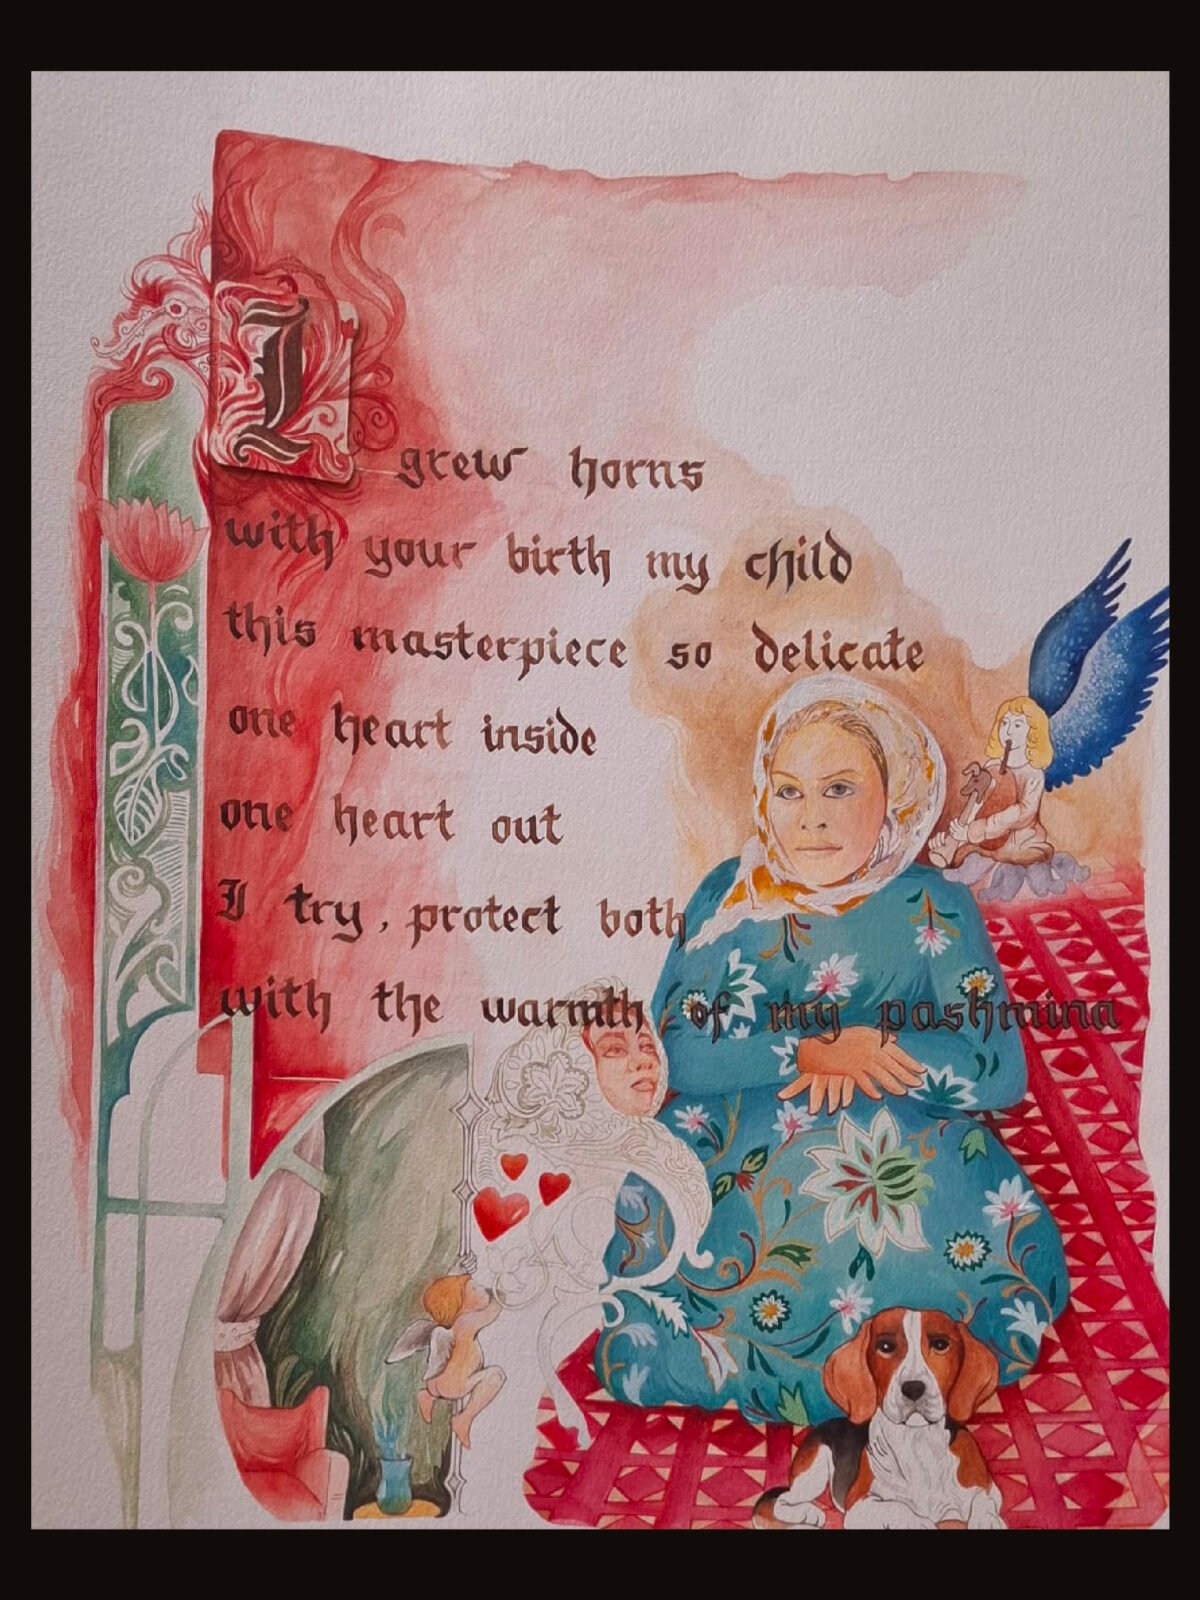 I grew horns
with your birth my child
this masterpiece so delicate
one heart inside
one heart out
I try, protect both
with the warmth of my pashmina